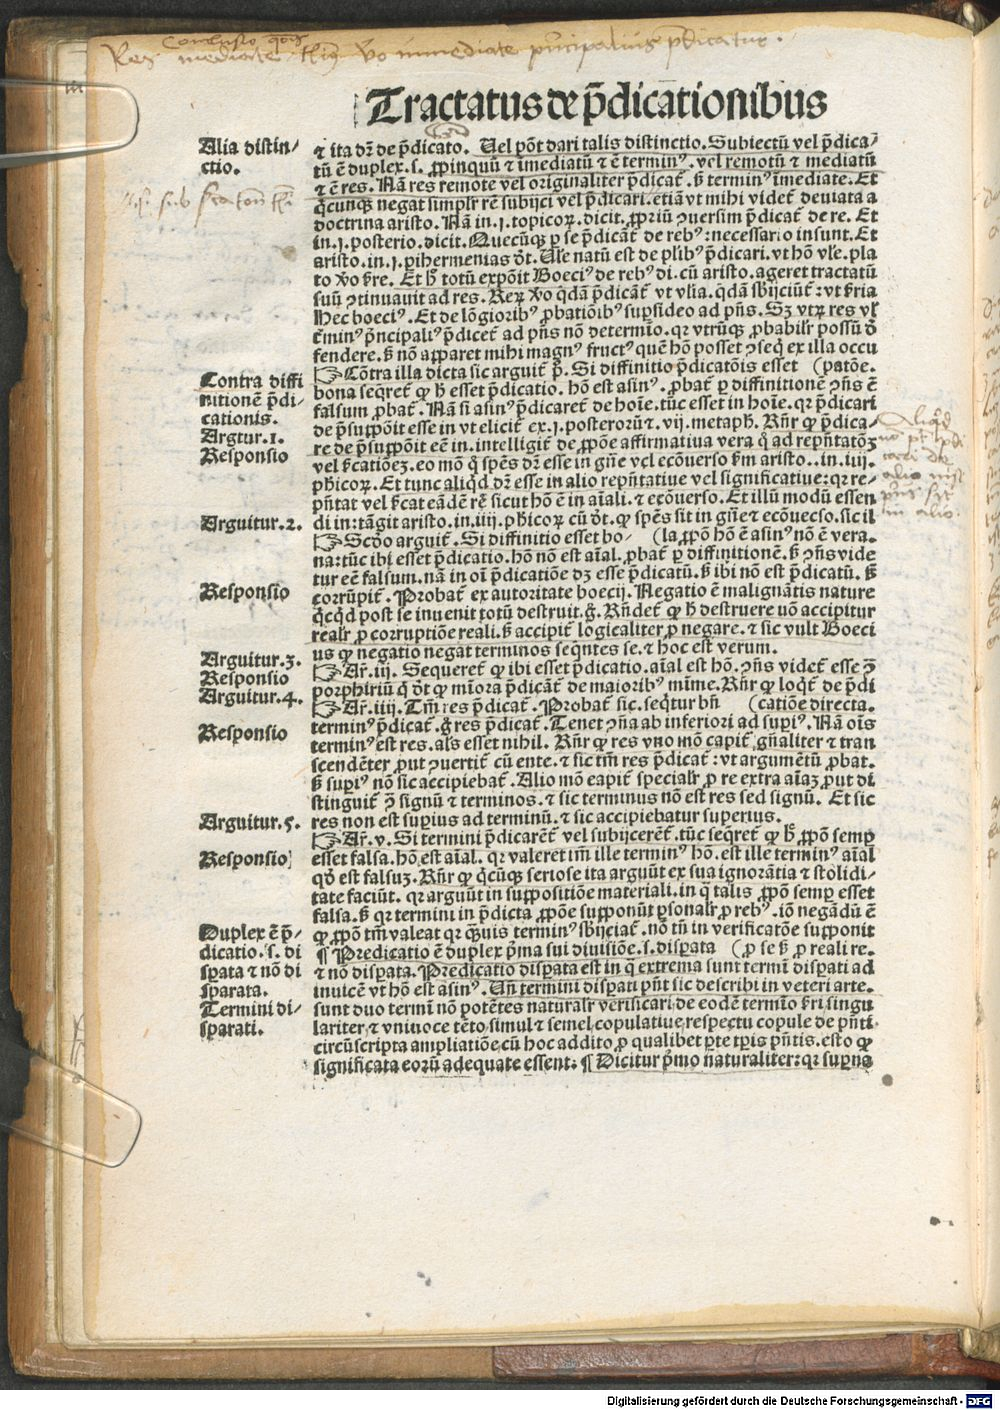 Conclusio
Res mediate vero immediate principalius predicatur.
Tractatus de p̄dicationibus
Alia distin-
ctio.
⁊ ita dr̄ de p̄dicato. Uel pōt dari talis distinctio. Subiectū vel p̄dica-
tū ē duplex .s. ꝓpinquū ⁊ īmediatū ⁊ ē terminꝰ. vel remotū ⁊ mediatū
⁊ ē res. Nā res remote vel originaliter p̄dicat̄. s̄ terminꝰ īmediate. Et
q̄cunqꝫ negat simplr̄ rē subijci vel p̄dicari. etiā vt mihi videt̄ deuiata a
doctrina aristo. Nā in .j. topicoꝝ. dicit. ꝓpriū ꝯuersim p̄dicat̄ de re. Et
in .j. posterio. dicit. Quecūqꝫ ꝑ se p̄dicāt̄ de rebꝰ: necessario insunt. Et
aristo. in .j. pihermenias ōt. Uſe natū est de plībꝰ p̄dicari. vt hō vſe. pla
to v̄o ſre. Et h̄ totū expōit Boeciꝰ de rebꝰ di. cū aristo. ageret tractatū
suū ꝯtinuauit ad res. Reꝝ v̄o q̄dā p̄dicāt̄ vt vlia. q̄dā sb̄ijciūt̄: vt ſria
Hec boeciꝰ. Et de lōgioribꝰ ꝓbatiōibꝰ suꝑsideo ad p̄ns. Sꝫ vtꝝ res vſ
t̄minꝰ p̄ncipaliꝰ p̄dicet̄ ad p̄ns nō determīo. qr vtrūqꝫ ꝓbabilr̄ possū d̄
fendere. s̄ nō apparet mihi magnꝰ fructꝰ quē hō posset ꝯseq̄ ex illa occu
(patōe.
Contra diffi
nitionē p̄di-
cationis.
Argtur. 1.
Responsio
☞ Cōtra illa dicta sic arguit̄ p̄. Si diffinitio p̄dicatōis esset
bona seq̄ret̄ ꝙ h̄ esset p̄dicatio. hō est asinꝰ. ꝓbat̄ ꝑ diffinitionē ꝯn̄s ē
falsum ꝓbat̄. Nā si asinꝰ p̄dicaret̄ de hoīe. tūc esset in hoīe. qr p̄dicari
de p̄suppōit esse in vt elicit̄ ex .j. posterorū ⁊ .vij. metaph̄. Rn̄r ꝙ p̄dica-
re de p̄suppōit eē in. intelligit̄ de ꝓpōe affirmatiua vera q̄ ad repn̄tatōꝫ
vel ſcatiōeꝫ. eo mō q̄ spēs dr̄ esse in gn̄e vel ecōuerso ſm aristo. .in .iiij.
ph̄icoꝝ. Et tunc aliqd̄ dr̄ esse in alio repn̄tatiue vel significatiue: qr re-
pn̄tat vel ſcat eādē rē sicut hō ē in aīali. ⁊ ecōuerso. Et illū modū essen
di in: tāgit aristo. in .iiij. phicoꝝ cū ōt. ꝙ spēs sit in gn̄e ⁊ ecōuecso. sic il
(la ꝓpō hō ē asinꝰ nō ē vera.
Arguitur. 2.
☞ Scd̄o arguit̄. Si diffinitio esset bo-
na: tūc ibi esset p̄dicatio. hō nō est aīal. ꝓbat̄ ꝑ diffinitionē. s̄ ꝯn̄s vide
tur eē falsum. nā in oī p̄dicatiōe dꝫ esse p̄dicatū. s̄ ibi nō est p̄dicatū. s̄
Responsio
corrūpit̄. Probat̄ ex autoritate boecij. Negatio ē malignātis nature
q̄cqd̄ post se inuenit totū destruit. ḡ. Rn̄det̄ ꝙ h̄ destruere uō accipitur
realr̄ ꝓ corruptiōe reali. s̄ accipit̄ logicaliter ꝓ negare. ⁊ sic vult Boeci
us ꝙ negatio negat terminos seq̄ntes se. ⁊ hoc est verum.
Arguitur. 3.
Responsio
☞ Ar̄. iij. Sequeret̄ ꝙ ibi esset p̄dicatio. aīal est hō. ꝯn̄s videt̄ esse ꝯ̄
porphiriū q̄ ōt ꝙ mīora p̄dicāt̄ de maioribꝰ mīme. Rn̄r ꝙ loq̄t̄ de p̄di
(catiōe directa.
Arguitur. 4.
☞ Ar̄. iiij. Tm̄ res p̄dicat̄. Probat̄ sic. seq̄tur bn̄
terminꝰ p̄dicat̄. ḡ res p̄dicat̄. Tenet ꝯn̄a ab inferiori ad supiꝰ. Nā oīs
Responsio
terminꝰ est res. als̄ esset nihil. Rn̄r ꝙ res vno mō capit̄ gn̄aliter ⁊ tran
scendēter ꝓut ꝯuertit̄ cū ente. ⁊ sic tm̄ res p̄dicat̄: vt argumētū ꝓbat.
s̄ supiꝰ nō sic accipiebat̄. Alio mō eapit̄ specialr̄ ꝓ re extra aīaꝫ ꝓut di
stinguit̄ ꝯ̄ signū ⁊ terminos. ⁊ sic terminus nō est res sed signū. Et sic
res non est supius ad terminū. ⁊ sic accipiebatur superius.
Arguitur. 5.
☞ Ar̄. v. Si termini p̄dicarēt̄ vel subijcerēt̄. tūc seq̄ret̄ ꝙ h̄ ꝓpō semꝑ
Responsio
esset falsa. hō est aīal. qr valeret im̄ ille terminꝰ hō. est ille terminꝰ aīal
qd̓ est falsuꝫ. Rn̄r ꝙ q̄cūqꝫ seriose ita arguūt ex sua ignorātia ⁊ stolidi-
tate faciūt. qr arguūt in suppositiōe materiali. in q̄ talis ꝓpō semꝑ esset
falsa. s̄ qr termini in p̄dicta ꝓpōe supponūt ꝑsonalr̄ ꝓ rebꝰ. iō negādū ē
ꝙ ꝓpō tm̄ valeat qr q̄uis terminꝰ sb̄iciat̄. nō tn̄ in verificatōe supponit
(ꝓ se s̄ ꝓ reali re.
Duplex ē p̄-
dicatio .s. di
sꝑata ⁊ nō di
sparata.
Termini di-
sparati.
¶ Predicatio ē duplex p̄ma sui diuisiōe .s. disꝑata
⁊ nō disꝑata. Predicatio disꝑata est in q̄ extrema sunt termī disꝑati ad
inuicē vt hō est asinꝰ. Un̄ termini disꝑati pn̄t sic describi in veteri arte.
sunt duo termī nō potētes naturalr̄ verificari de eodē termīo ſri singu
lariter ⁊ vniuoce tēto simul ⁊ semel copulatiue respectu copule de pn̄ti
circūscripta ampliatiōe cū hoc addito ꝓ qualibet ꝑte tꝑis pn̄tis. esto ꝙ
significata eorū adequate essent. ¶ Dicitur p̄mo naturaliter: qr suꝑna
Digitalisierung gefördert durch die Deutsche Forschungsgemeinschaft - DFG